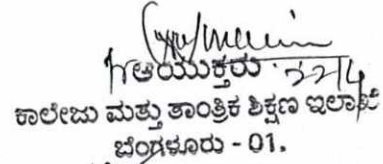 ಆಯುಕ್ತರು 22/4
ಕಾಲೇಜು ಮತ್ತು ತಾಂತ್ರಿಕ ಶಿಕ್ಷಣ ಇಲಾಖೆ
ಬೆಂಗಳೂರು - 01.